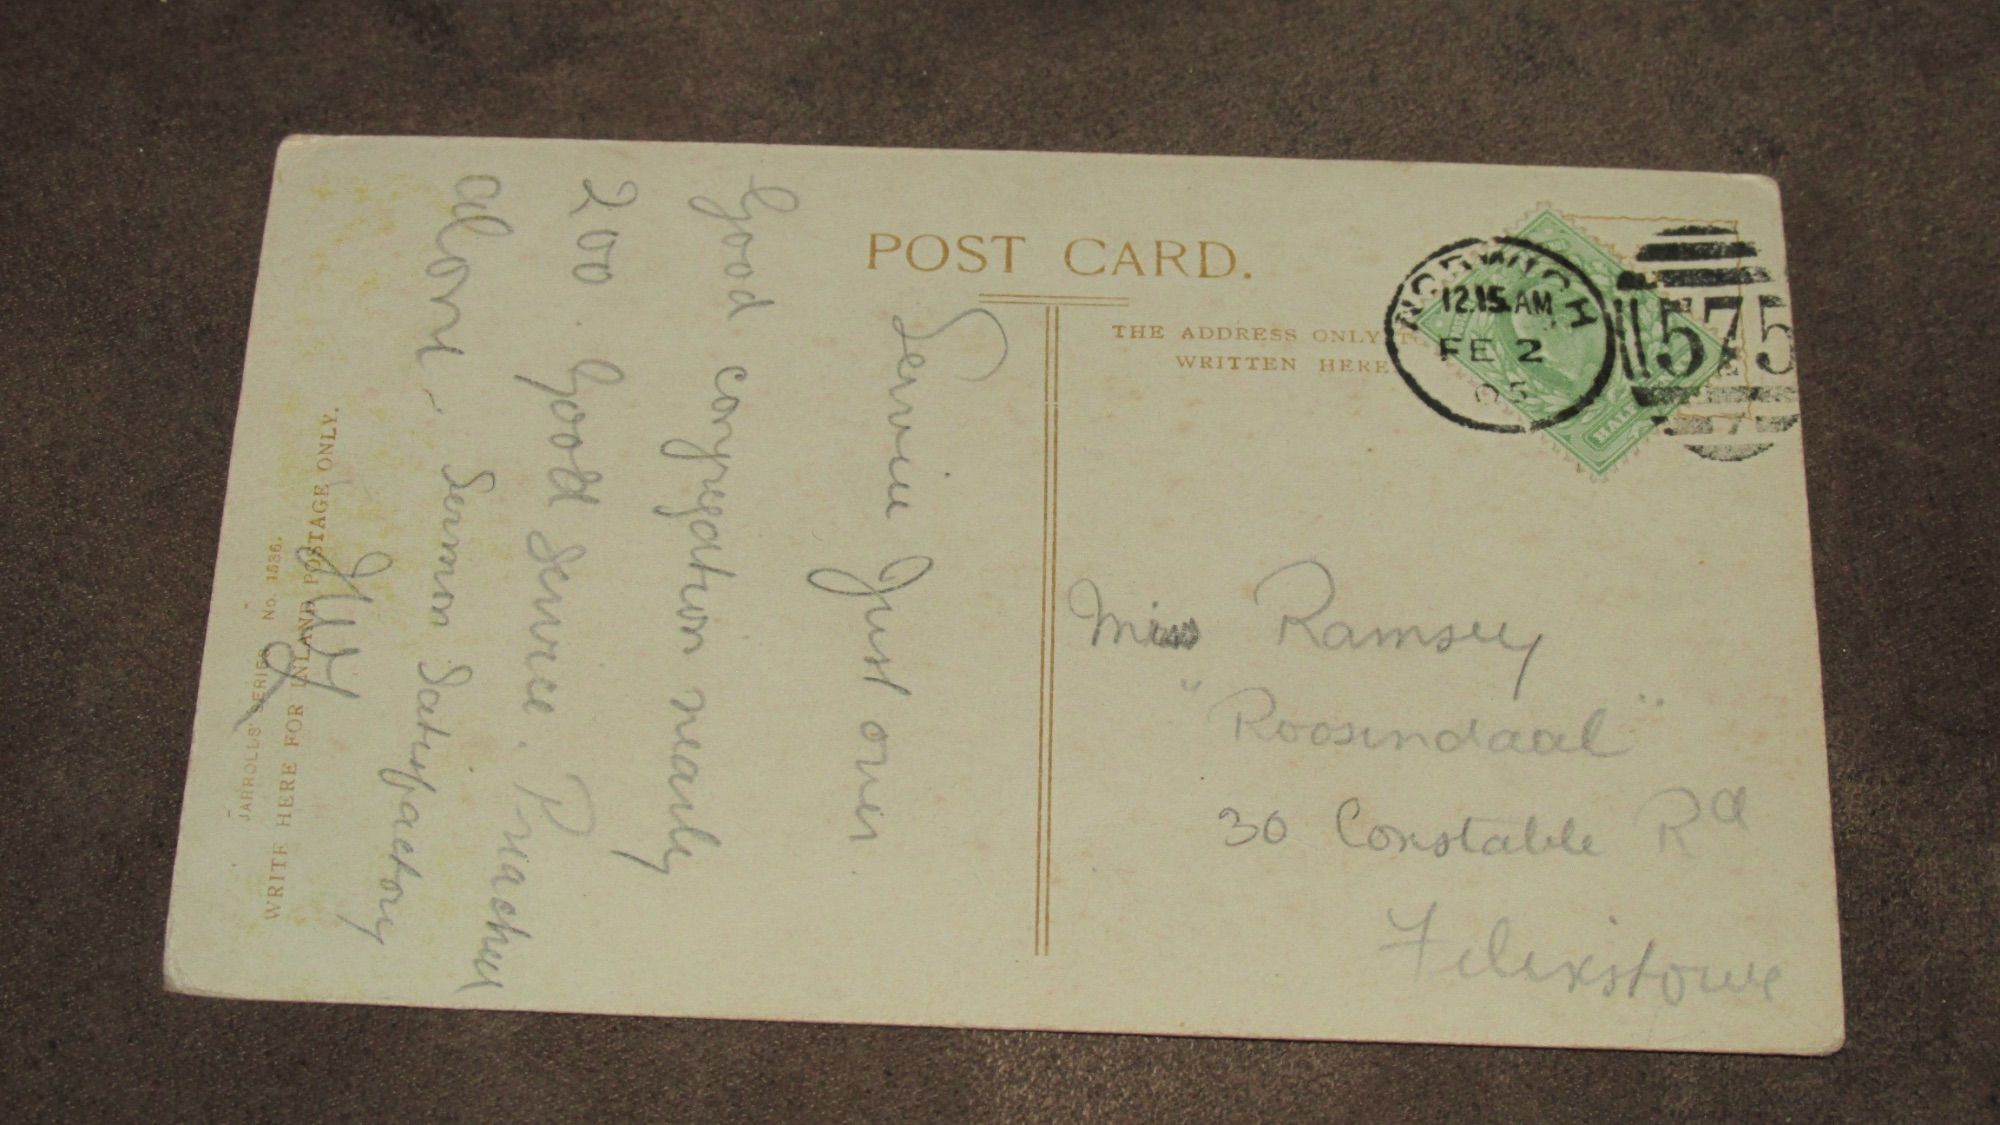 POST CARD.
THE ADDRESS ONLY
WRITTEN HERE
NORWICH
12.15.AM
FE 2
05
575
HALF
Service Just over
Good congregation nearly
200. Good service. Preacher
alone. Sermon Satisfactory
Miss Ramsey
"Roosendaal"
30 Constable Rd
Felixstowe
WRITE HERE FOR INLAND POSTAGE ONLY.
JARROLDS' SERIES No. 1536.